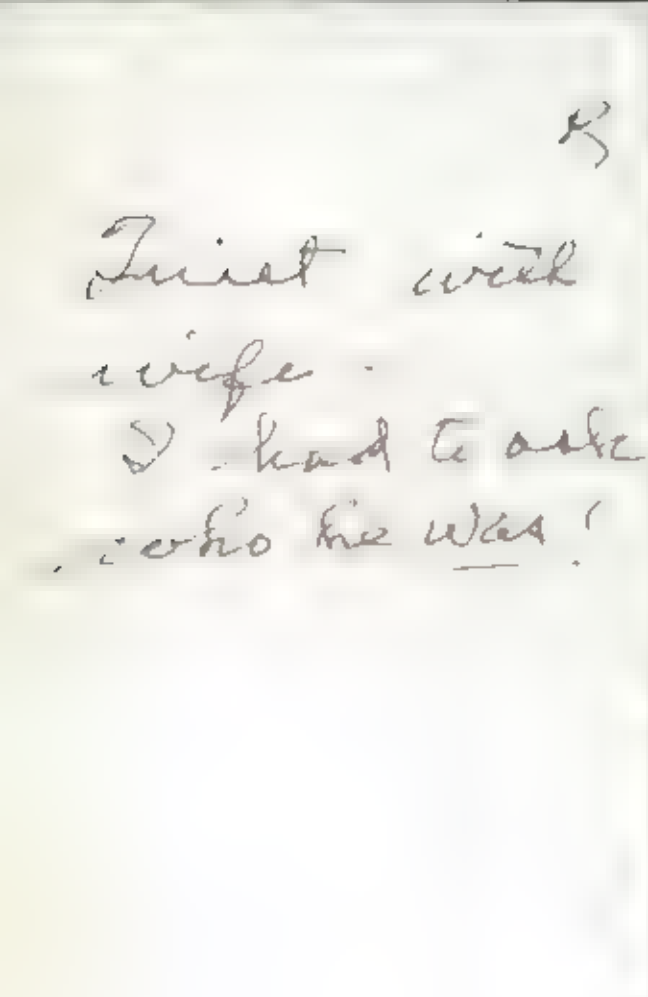 with
wife.
I had to ask
who he was!